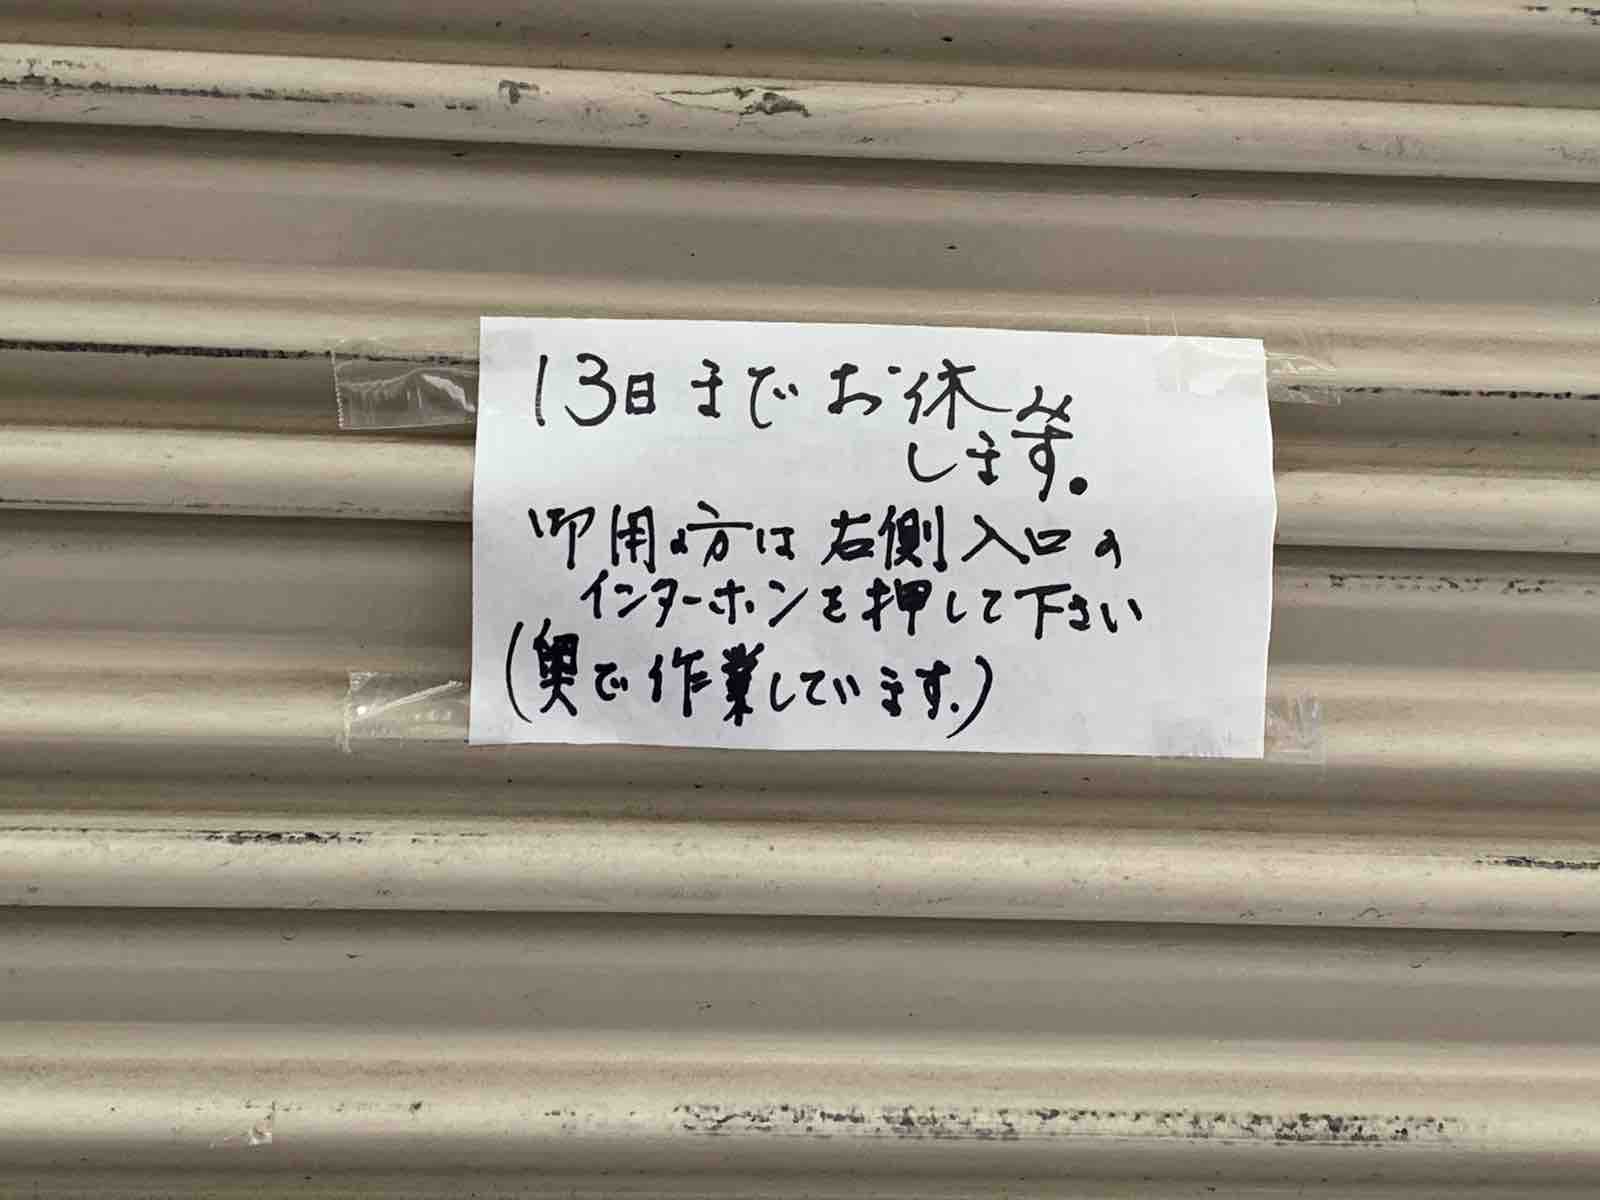 13日までお休み
します。
御用の方は右側入口の
インターホンを押して下さい
(奥で作業しています.)